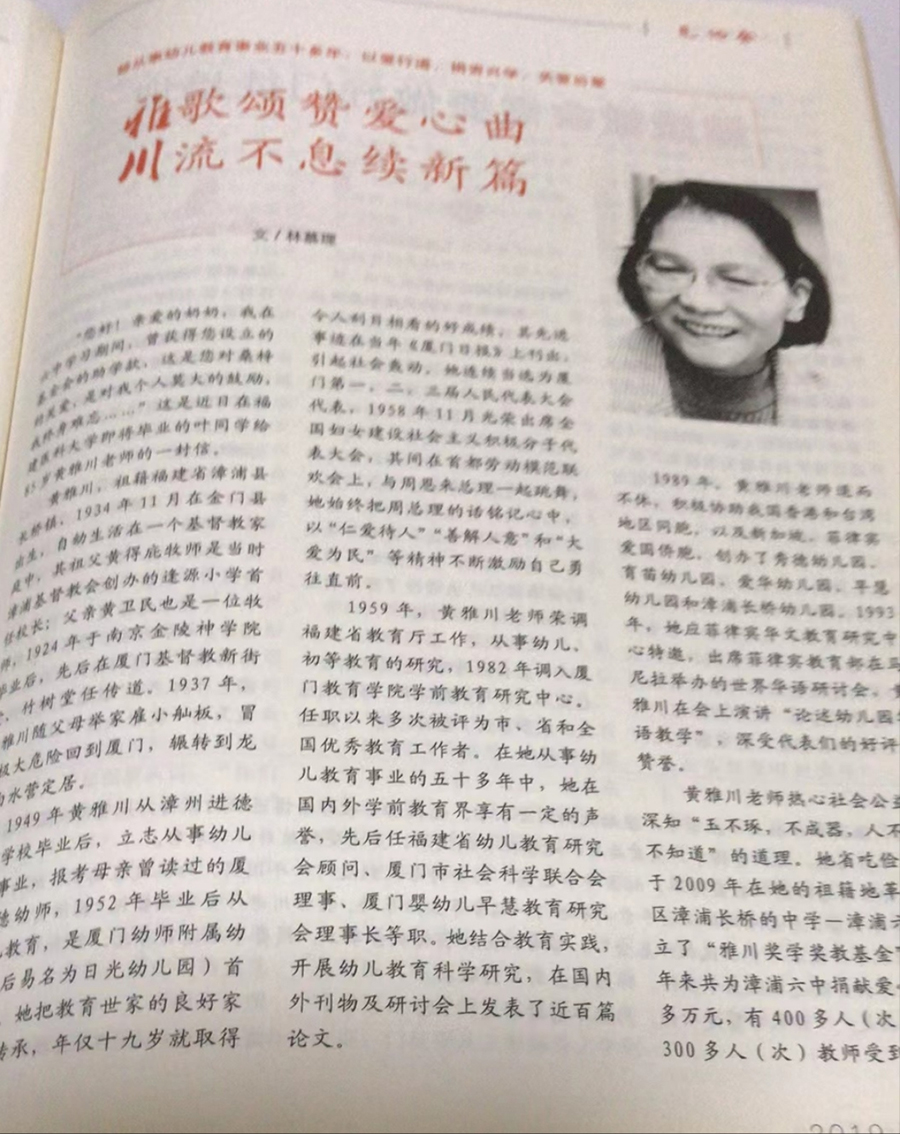 从事幼儿教育事业五十多年，以爱行道，捐资兴学，关爱后辈
雅歌颂赞爱心曲
川流不息续新篇
文/林慕理
“您好！亲爱的奶奶，我在
六中学习期间，曾获得您设立的
基金会的助学款，这是您对桑梓
的关爱，是对我个人莫大的鼓励，
我终身难忘……”这是近日在福
建医科大学即得毕业的叶同学给
85岁黄雅川老师的一封信。
黄雅川，祖籍福建省漳浦县
长桥镇，1934年11月在金门县
出生，自幼生活在一个基督教家
庭中，其祖父黄得庇牧师是当时
漳浦基督教会创办的逢源小学首
任校长；父亲黄卫民也是一位牧
师，1924年于南京金陵神学院
毕业后，先后在厦门基督教新街
、竹树堂任传道。1937年，
雅川随父母举家雇小舢板，冒
极大危险回到厦门，辗转到龙
水营定居。
1949年黄雅川从漳州进德
学校毕业后，立志从事幼儿
事业，报考母亲曾读过的厦
德幼师，1952年毕业后从
教育，是厦门幼师附属幼
后易名为日光幼儿园）首
她把教育世家的良好家
传承，年仅十九岁就取得
令人刮目相看的好成绩，其先进
事迹在当年《厦门日报》上刊出，
引起社会轰动。她连续当选为厦
门第一、二、三届人民代表大会
代表，1958年11月光荣出席全
国妇女建设社会主义积极分子代
表大会，其间在首都劳动模范联
欢会上，与周恩来总理一起跳舞，
她始终把周总理的话铭记心中，
以“仁爱待人”“善解人意”和“大
爱为民”等精神不断激励自己勇
往直前。
1959年，黄雅川老师荣调
福建省教育厅工作，从事幼儿、
初等教育的研究，1982年调入厦
门教育学院学前教育研究中心。
任职以来多次被评为市、省和全
国优秀教育工作者。在她从事幼
儿教育事业的五十多年中，她在
国内外学前教育界享有一定的声
誉，先后任福建省幼儿教育研究
会顾问、厦门市社会科学联合会
理事、厦门婴幼儿早慧教育研究
会理事长等职。她结合教育实践，
开展幼儿教育科学研究，在国内
外刊物及研讨会上发表了近百篇
论文。
1989年，黄雅川老师退而
不休，积极协助我国香港和台湾
地区同胞，以及新加坡、菲律宾
爱国侨胞，创办了秀德幼儿园、
育苗幼儿园、爱华幼儿园、早慧
幼儿园和漳浦长桥幼儿园。1993
年，她应菲律宾华文教育研究中
心特邀，出席菲律宾教育部在马
尼拉举办的世界华语研讨会。黄
雅川在会上演讲“论述幼儿园
语教学”，深受代表们的好评
赞誉。
黄雅川老师热心社会公益
深知“玉不琢，不成器，人不
不知道”的道理。她省吃俭
于2009年在她的祖籍地革
区漳浦长桥的中学—漳浦六
立了“雅川奖学奖教基金”
年来共为漳浦六中捐献爱
多万元，有400多人（次
300多人（次）教师受到
2019